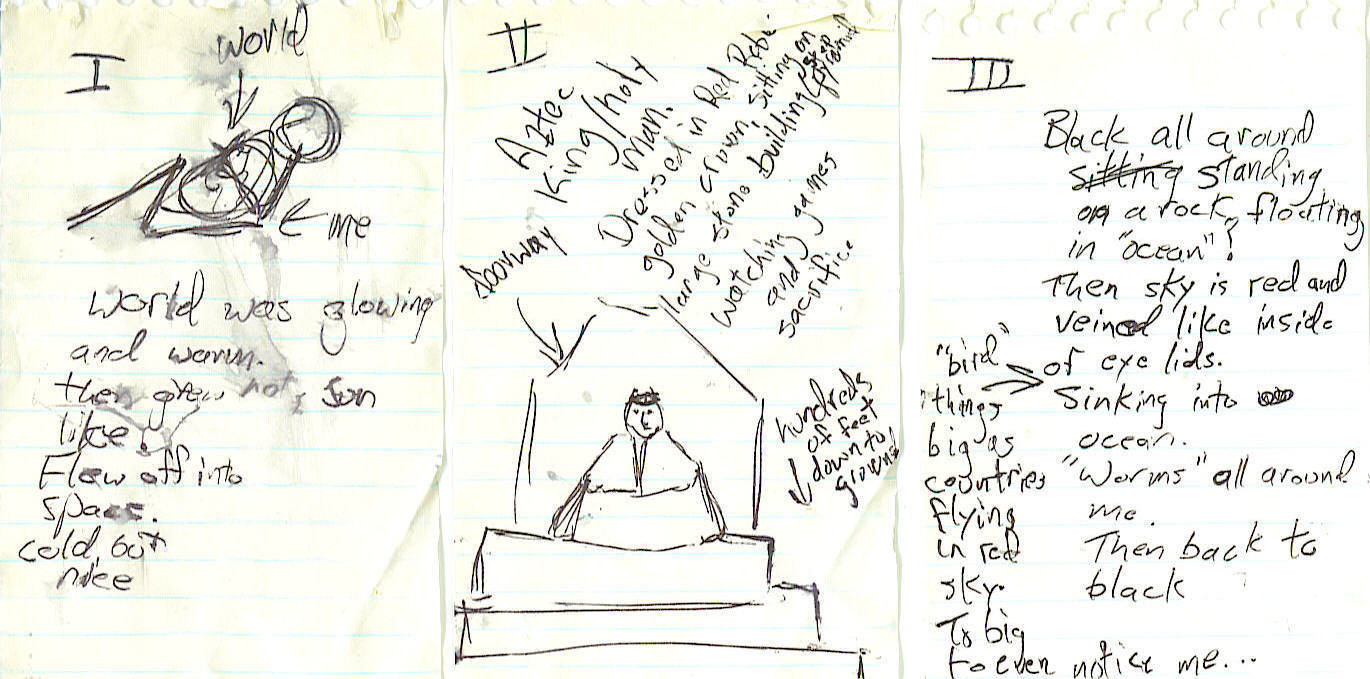 I
World
← me
World was glowing
and warm.
then grew hot, sun
like.
Flew off into
space.
cold, but
nice
II
Aztec
King/holy
man.
Dressed in Red Robe.
golden crown, sitting on
large stone building (step pyramid)
watching
and games
sacrifice
doorway
hundreds
of feet
down to
ground
III
Black all around
sitting standing
on a rock, floating
in "ocean"?
Then sky is red and
veined like inside
of eye lids.
Sinking into
ocean.
"Worms" all around
me.
Then back to
black
"bird"
things
big as
countries
flying
in red
sky.
To big
to even notice me...